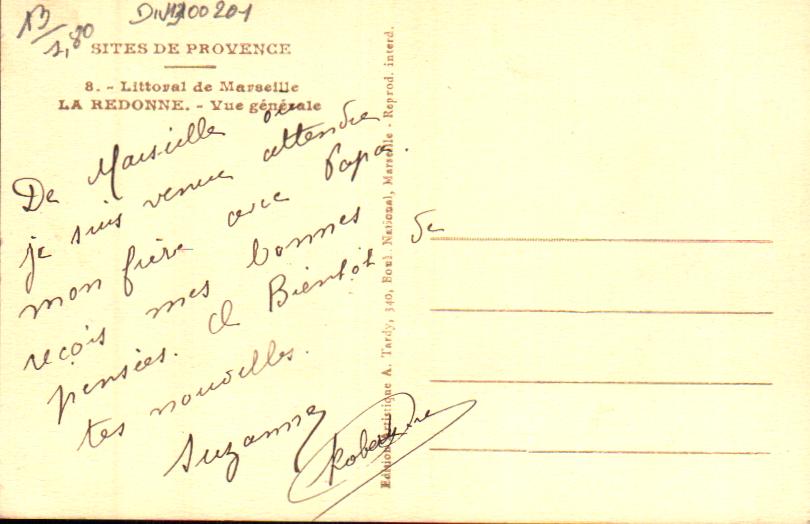 13/1,80
SITES DE PROVENCE
8. - Littoral de Marseille
LA REDONNE. - Vue générale
De Marseille où
je suis venue attendre
mon frère avec Papa.
reçois mes bonnes
pensées. A Bientôt de
tes nouvelles.
Suzanne
Edition Artistique A. Tardy, 340, Boul. National, Marseille - Reprod. interd.